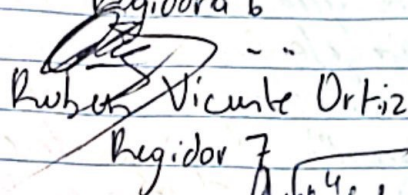 Regidora 6
Ruben Vicente Ortiz
Regidor 7